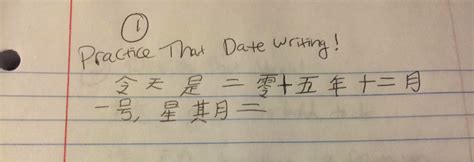 ①
Practice That Date Writing!
今天是二零十五年十二月
一号, 星其月二